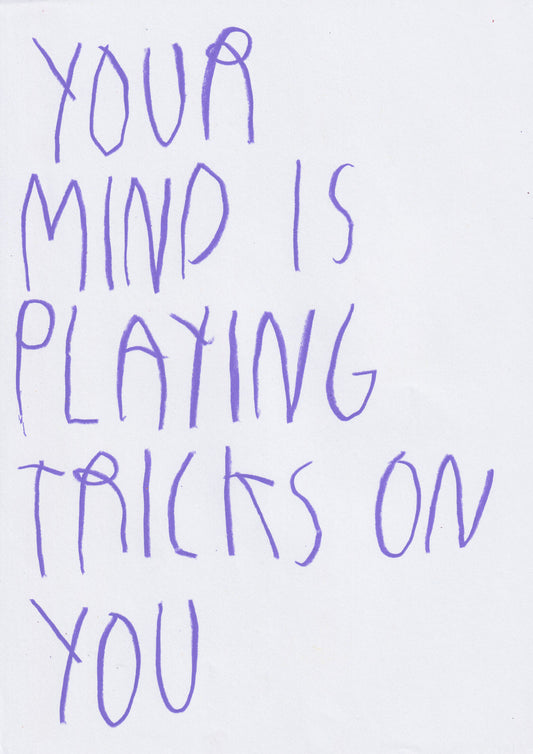 YOUR
MIND IS
PLAYING
TRICKS ON
YOU